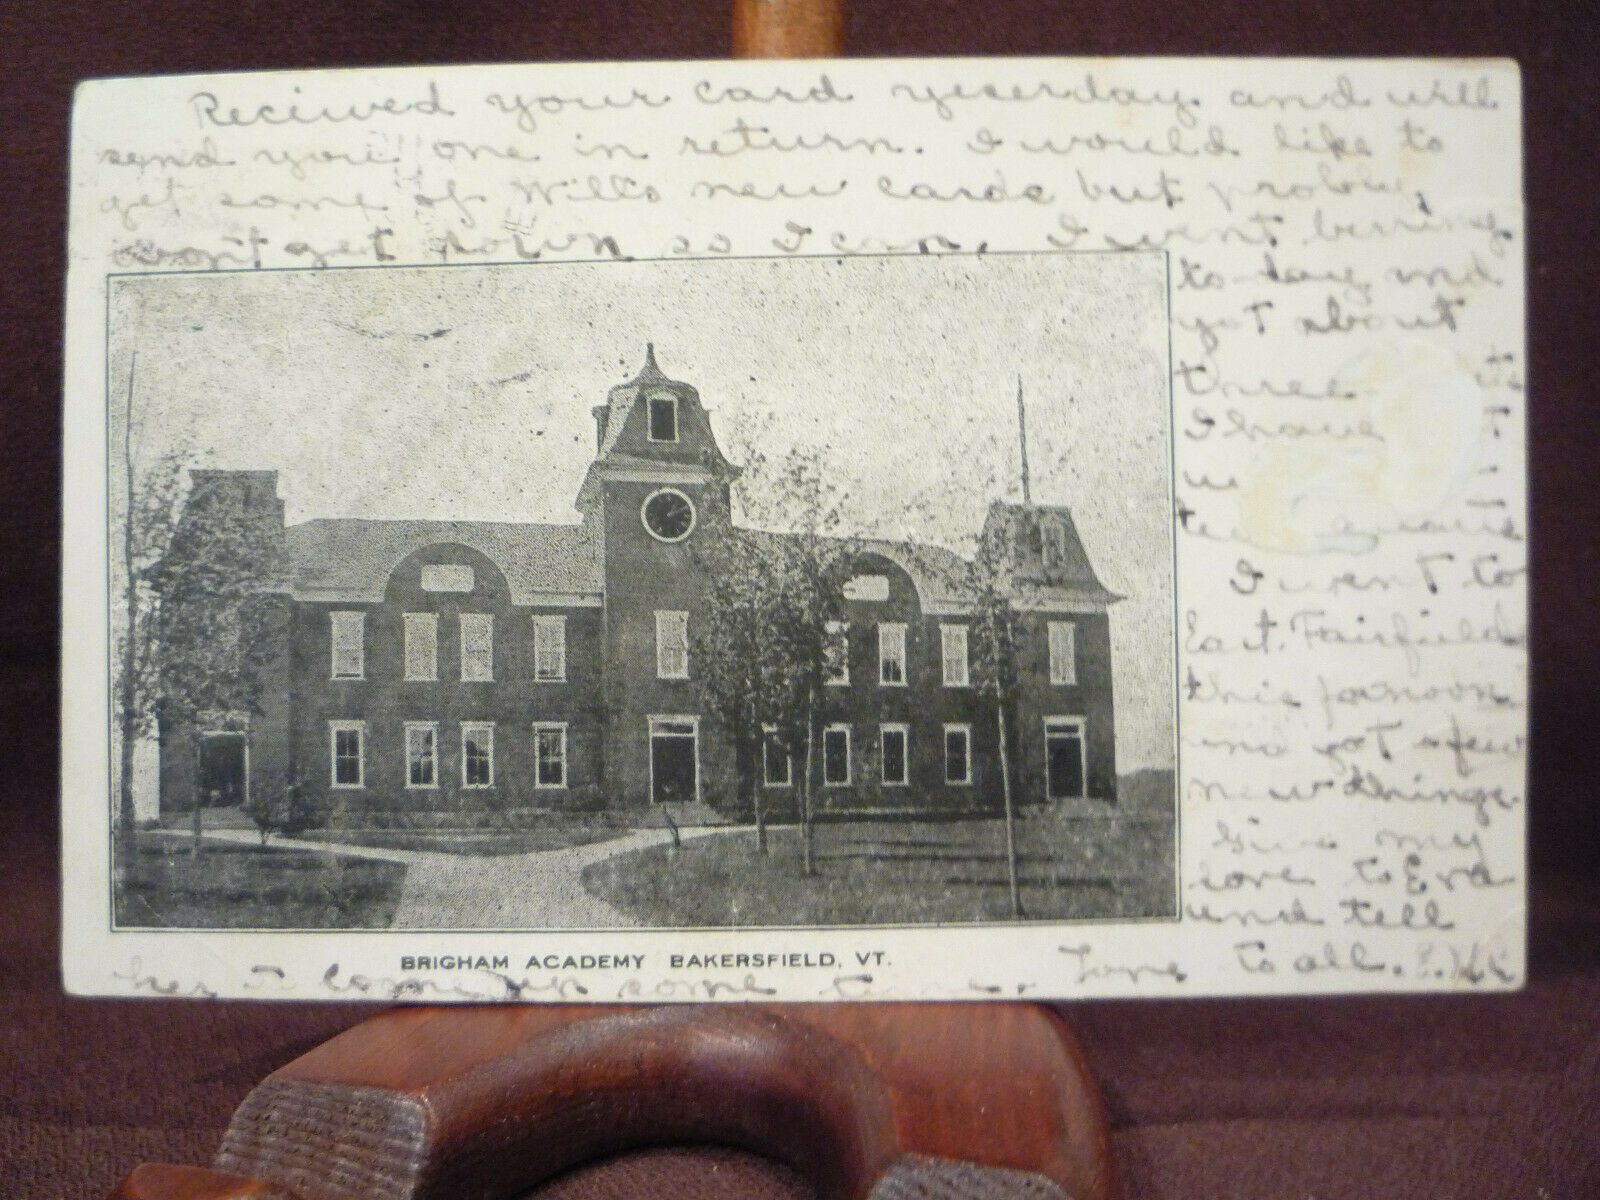 Reciewed your card yeserday and will
send you one in return. I would like to
get some of Will's new cards but probly
won't get down so I can. I went berring
to-day and
got about
three
I have
I went to
East. Fairfield
this fornoon
and got a few
new things
Give my
love to Era
and tell
BRIGHAM ACADEMY BAKERSFIELD, VT.
her to come up some time. Love to all.